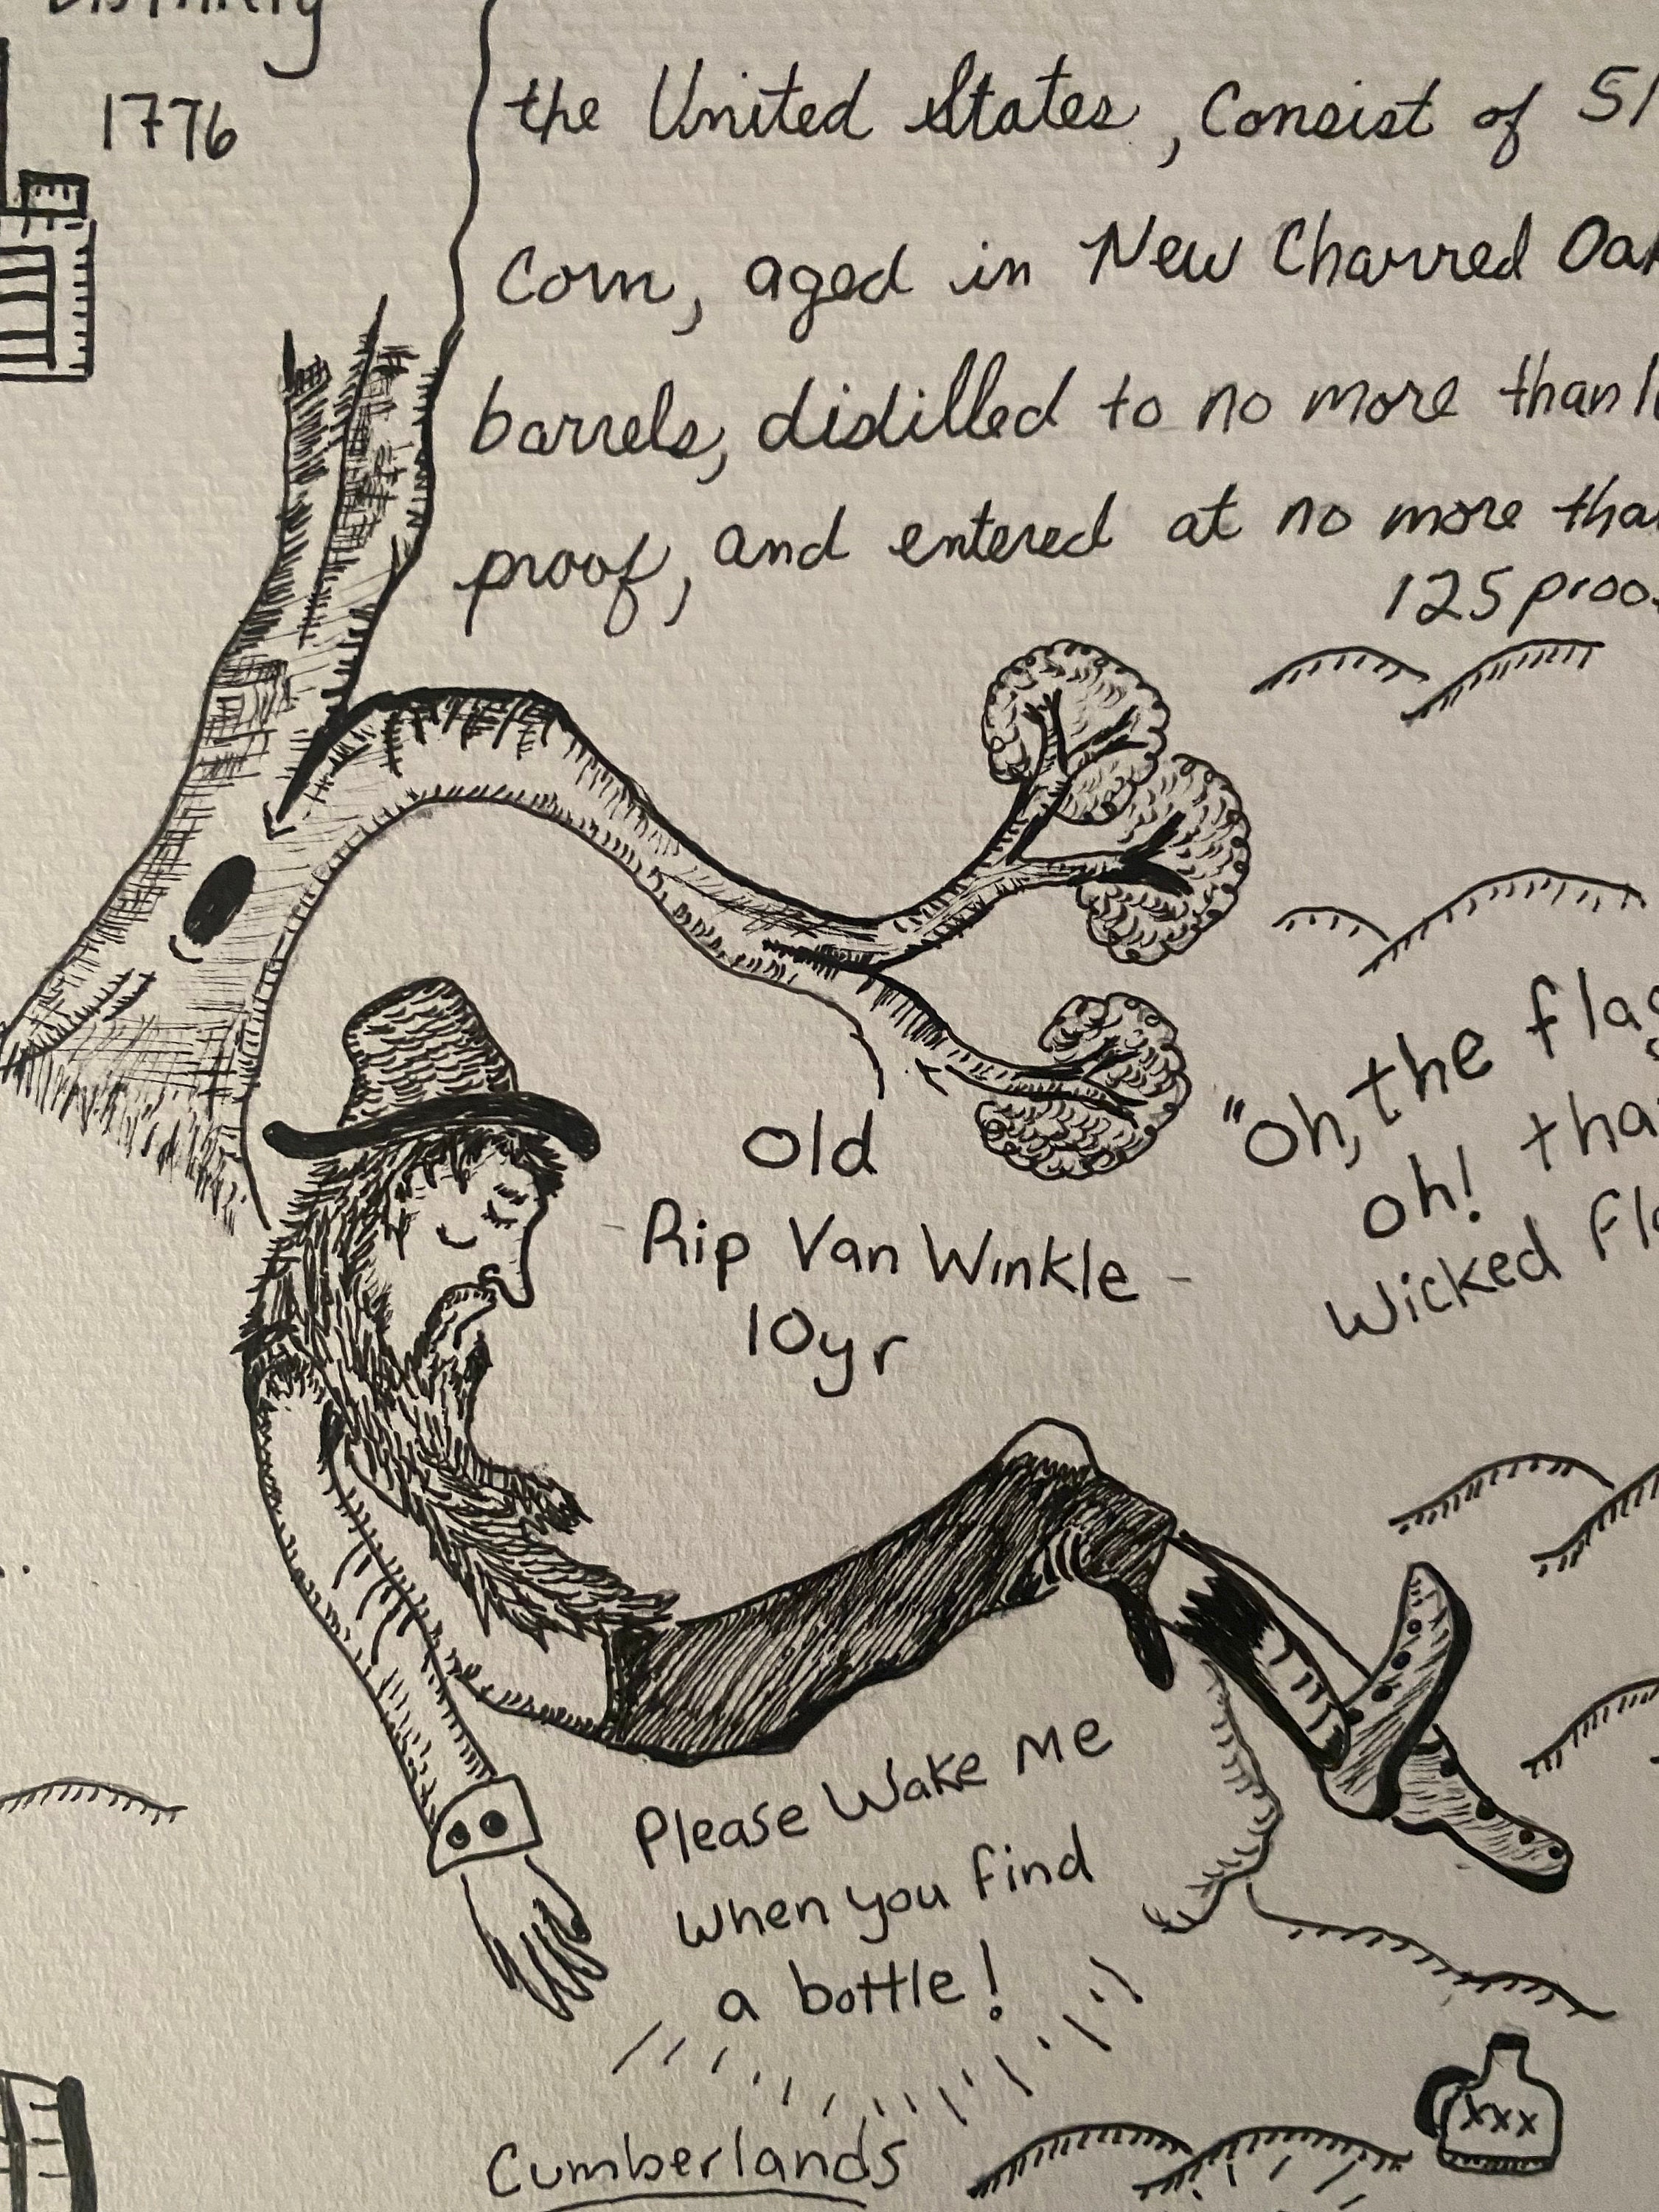 1776
the United States, Consist of 51
Corn, aged in New Charred Oak
barrels, distilled to no more than
proof, and entered at no more than
125 proof
"Oh, the flag
oh!
Wicked
Old
Rip Van Winkle
10yr
Please Wake Me
when you find
a bottle!
Cumberlands
XXX